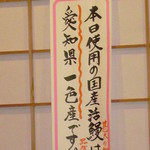 本日使用の国産活鰻は
愛知県一色産です